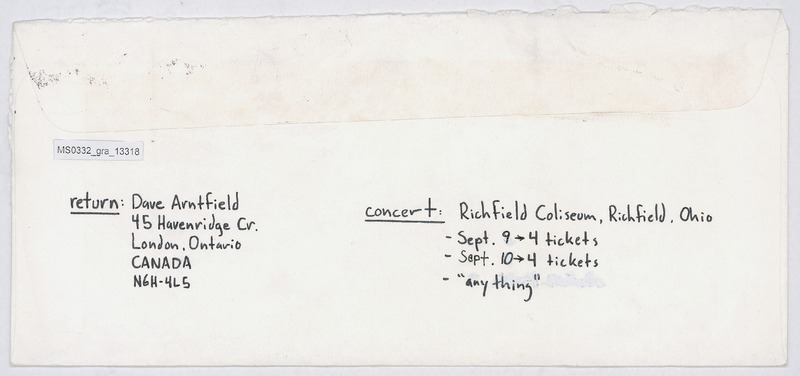 MS0332_gra_13318
return: Dave Arntfield
45 Havenridge Cr.
London, Ontario
CANADA
N6H-4L5
concert: Richfield Coliseum, Richfield, Ohio
- Sept. 9→4 tickets
- Sept. 10→4 tickets
- "any thing"